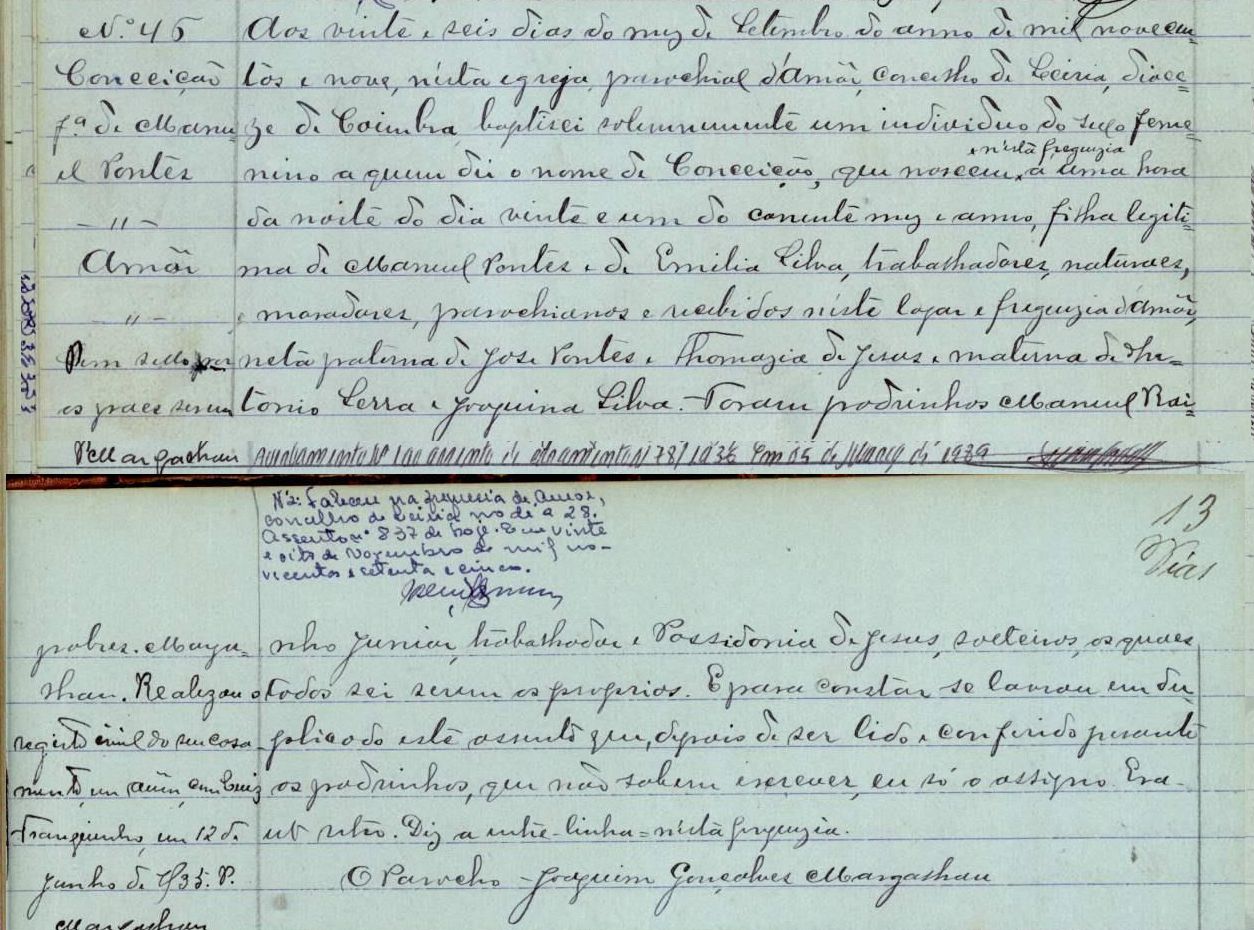 Nº 45
Conceição
fª de Manu
el Pontes
— 〃 —
Amôr
— 〃 —
Sem sello por
os paes serem
P. Margachau
Aos vinte e seis dias do mez de Setembro do anno de mil novecen=
tos e nove, n'esta egreja parochial d'Amôr, concelho de Leiria, dioce=
ze de Coimbra baptisei solemnemente um individuo do sexo feme=
e n'esta freguezia
nino a quem dei o nome de Conceição, que nasceu á uma hora
da noite do dia vinte e um do corrente mez e anno, filha legiti=
ma de Manuel Pontes e de Emilia Silva, trabalhadores, naturaes,
e moradores, parochianos e recebidos n'este logar e freguezia d'Amôr,
neta paterna de José Pontes e Thomazia de Jesus e materna de An=
tonio Serra e Joaquina Silva. Foram padrinhos Manuel Rai=
Averbamento Nº 1 ao assento de 1936 Em 25 de Março de 1939
Nº 2: Faleceu na freguesia de Amor,
concelho de Leiria no dia 28.
Assento nº 837 de hoje. Em vinte
e oito de Novembro de mil no-
vecentos e setenta e cinco.
13
Dias
pobres. Marga=
chau. Realizou o
registo civil do seu casa
mento, em Amôr, com Luiz
Franquinho, em 12 de
Junho de 1935. P.
Margachau
nho Junior, trabalhador e Possidonia de Jesus, solteiros, os quaes
todos sei serem os proprios. E para constar se lavrou em du
plicado este assento que, depois de ser lido e conferido perante
os padrinhos, que não sabem escrever, eu só o assigno. Era
ut retro. Diz a entre-linha = n'esta freguezia.
O Parocho — Joaquim Gonçalves Margachau